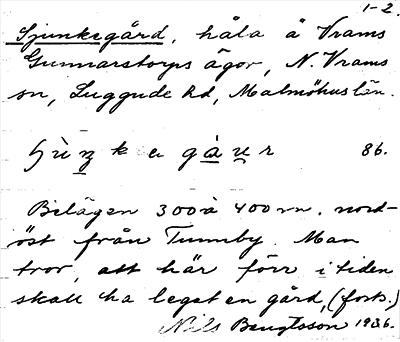 1-2.
Sjunkegård, håla å Vrams
Gunnarstorps ägor, N. Vrams
sn, Luggude hd, Malmöhus län.
86.
Belägen 300 à 400 m. nord-
öst från Tunnby. Man
tror, att här förr i tiden
skall ha legat en gård, (forts.)
Nils Bengtsson 1936.